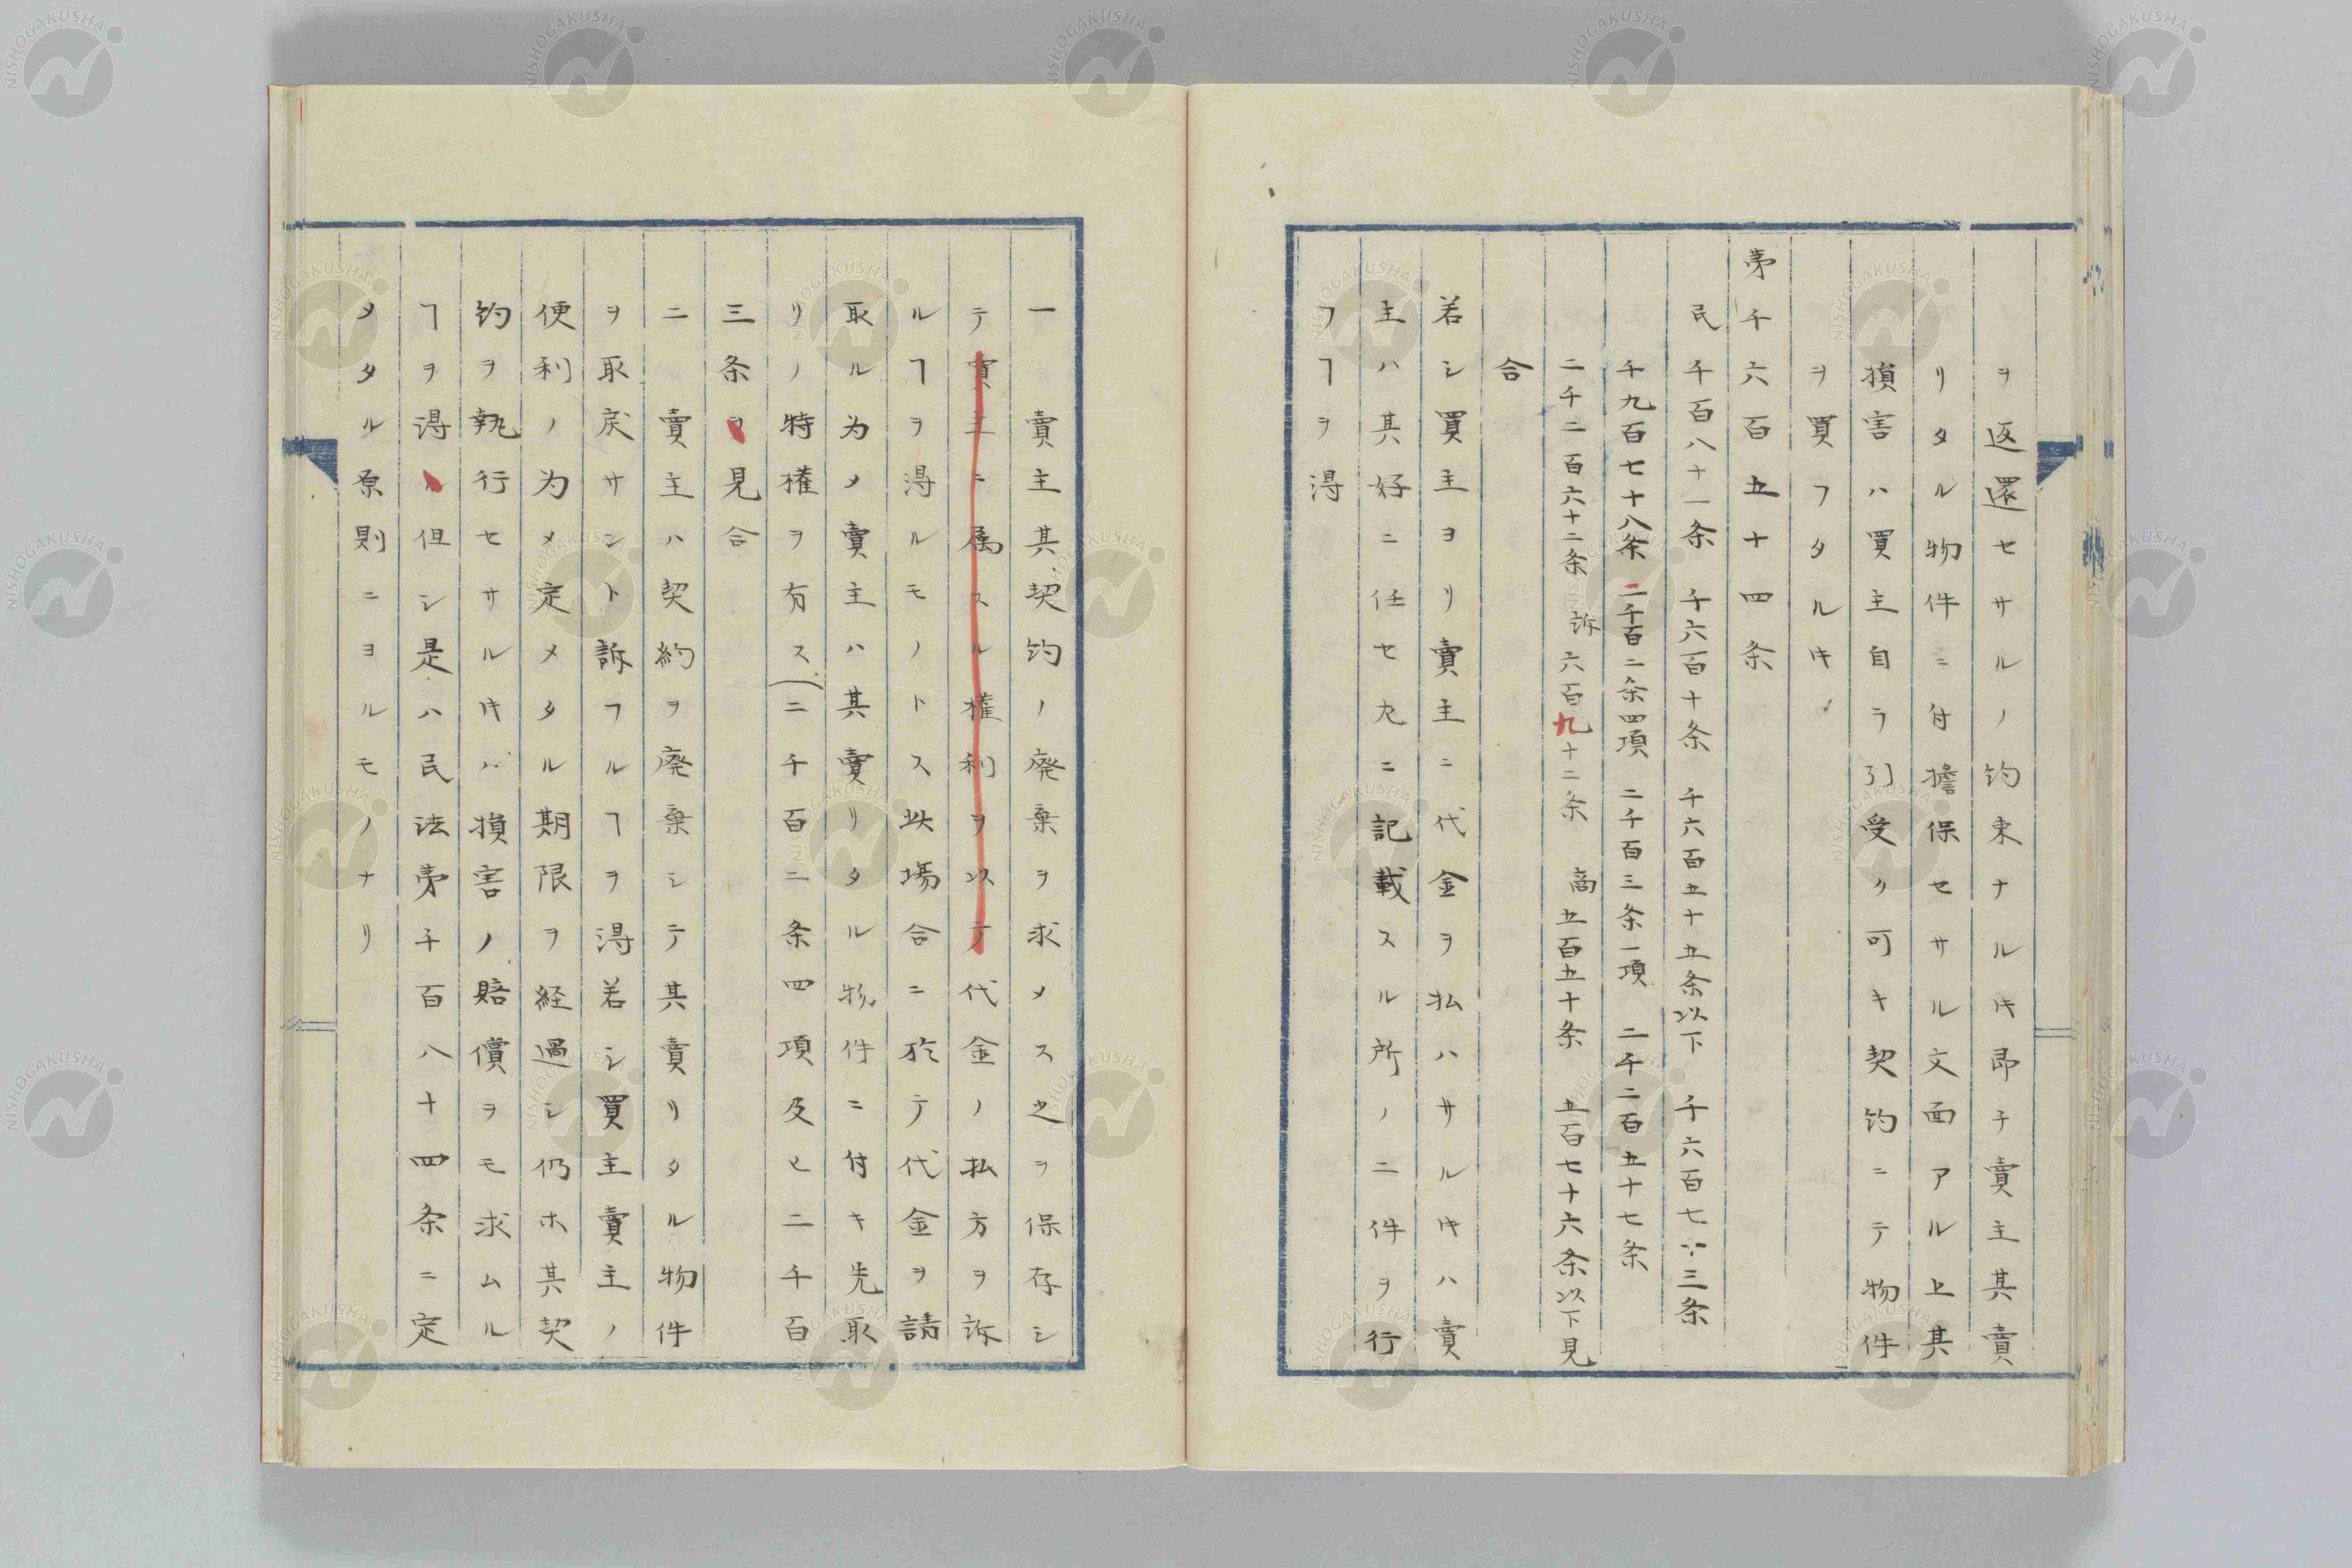 ヲ返還セサルノ約束ナルキ即チ賣主其賣
リタル物件ニ付擔保セサル文面アル上其
損害ハ買主自ラ引受ク可キ契約ニテ物件
ヲ買フタルキ
第千六百五十四条
民千百八十一条 千六百十条 千六百五十五条以下 千六百七十三条
千九百七十八条 二千百二条四項 二千百三条一項 二千二百五十七条
二千二百六十二条 訴六百九十二条 商五百五十条 五百七十六条以下見
合
若シ買主ヨリ賣主ニ代金ヲ払ハサルキハ賣
主ハ其好ニ任セ左ニ記載スル所ノ二件ヲ行
フヿヲ得
一 賣主其契約ノ廃棄ヲ求メス之ヲ保存シ
テ買主ニ属スル権利ヲ以テ代金ノ払方ヲ訴
ルヿヲ得ルモノトス此場合ニ於テ代金ヲ請
取ル為メ賣主ハ其賣リタル物件ニ付キ先取
リノ特権ヲ有ス(二千百二条四項及ヒ二千百
三条ヲ見合
二 賣主ハ契約ヲ廃棄シテ其賣リタル物件
ヲ取戻サント訴フルヿヲ得若シ買主賣主ノ
便利ノ為メ定メタル期限ヲ経過シ仍ホ其契
約ヲ執行セサルキハ損害ノ賠償ヲモ求ムル
ヿヲ得 但シ是ハ民法第千百八十四条ニ定
メタル原則ニヨルモノナリ
NISHOGAKUSHA